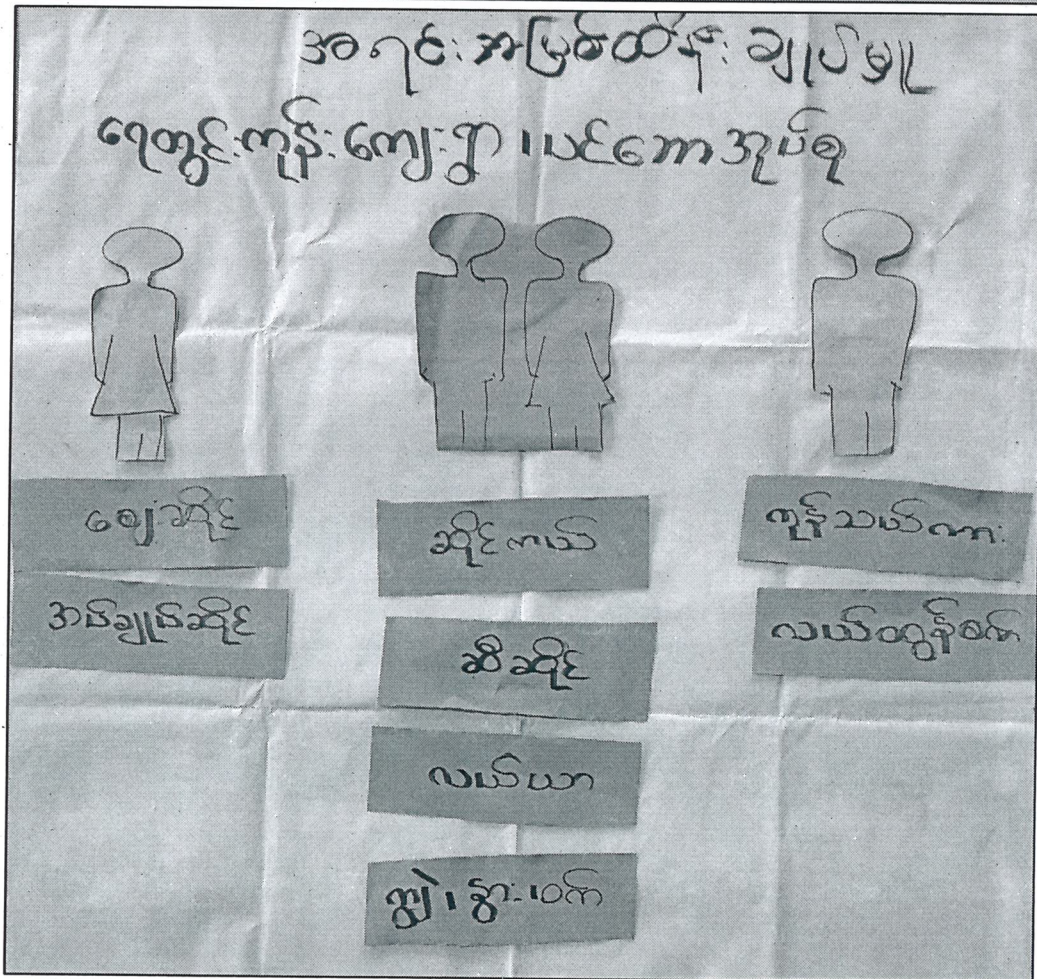 အရင်းအမြစ်ထိန်းချုပ်မှု
ရေတွင်းကုန်းကျေးရွာ၊ ယင်ဘောအုပ်စု
ဈေးဆိုင်
အပ်ချုပ်ဆိုင်
ဆိုင်ကယ်
ဆီဆိုင်
လယ်ယာ
ကျွဲ၊ နွား၊ ဝက်
ကုန်သယ်ကား
လယ်ထွန်စက်